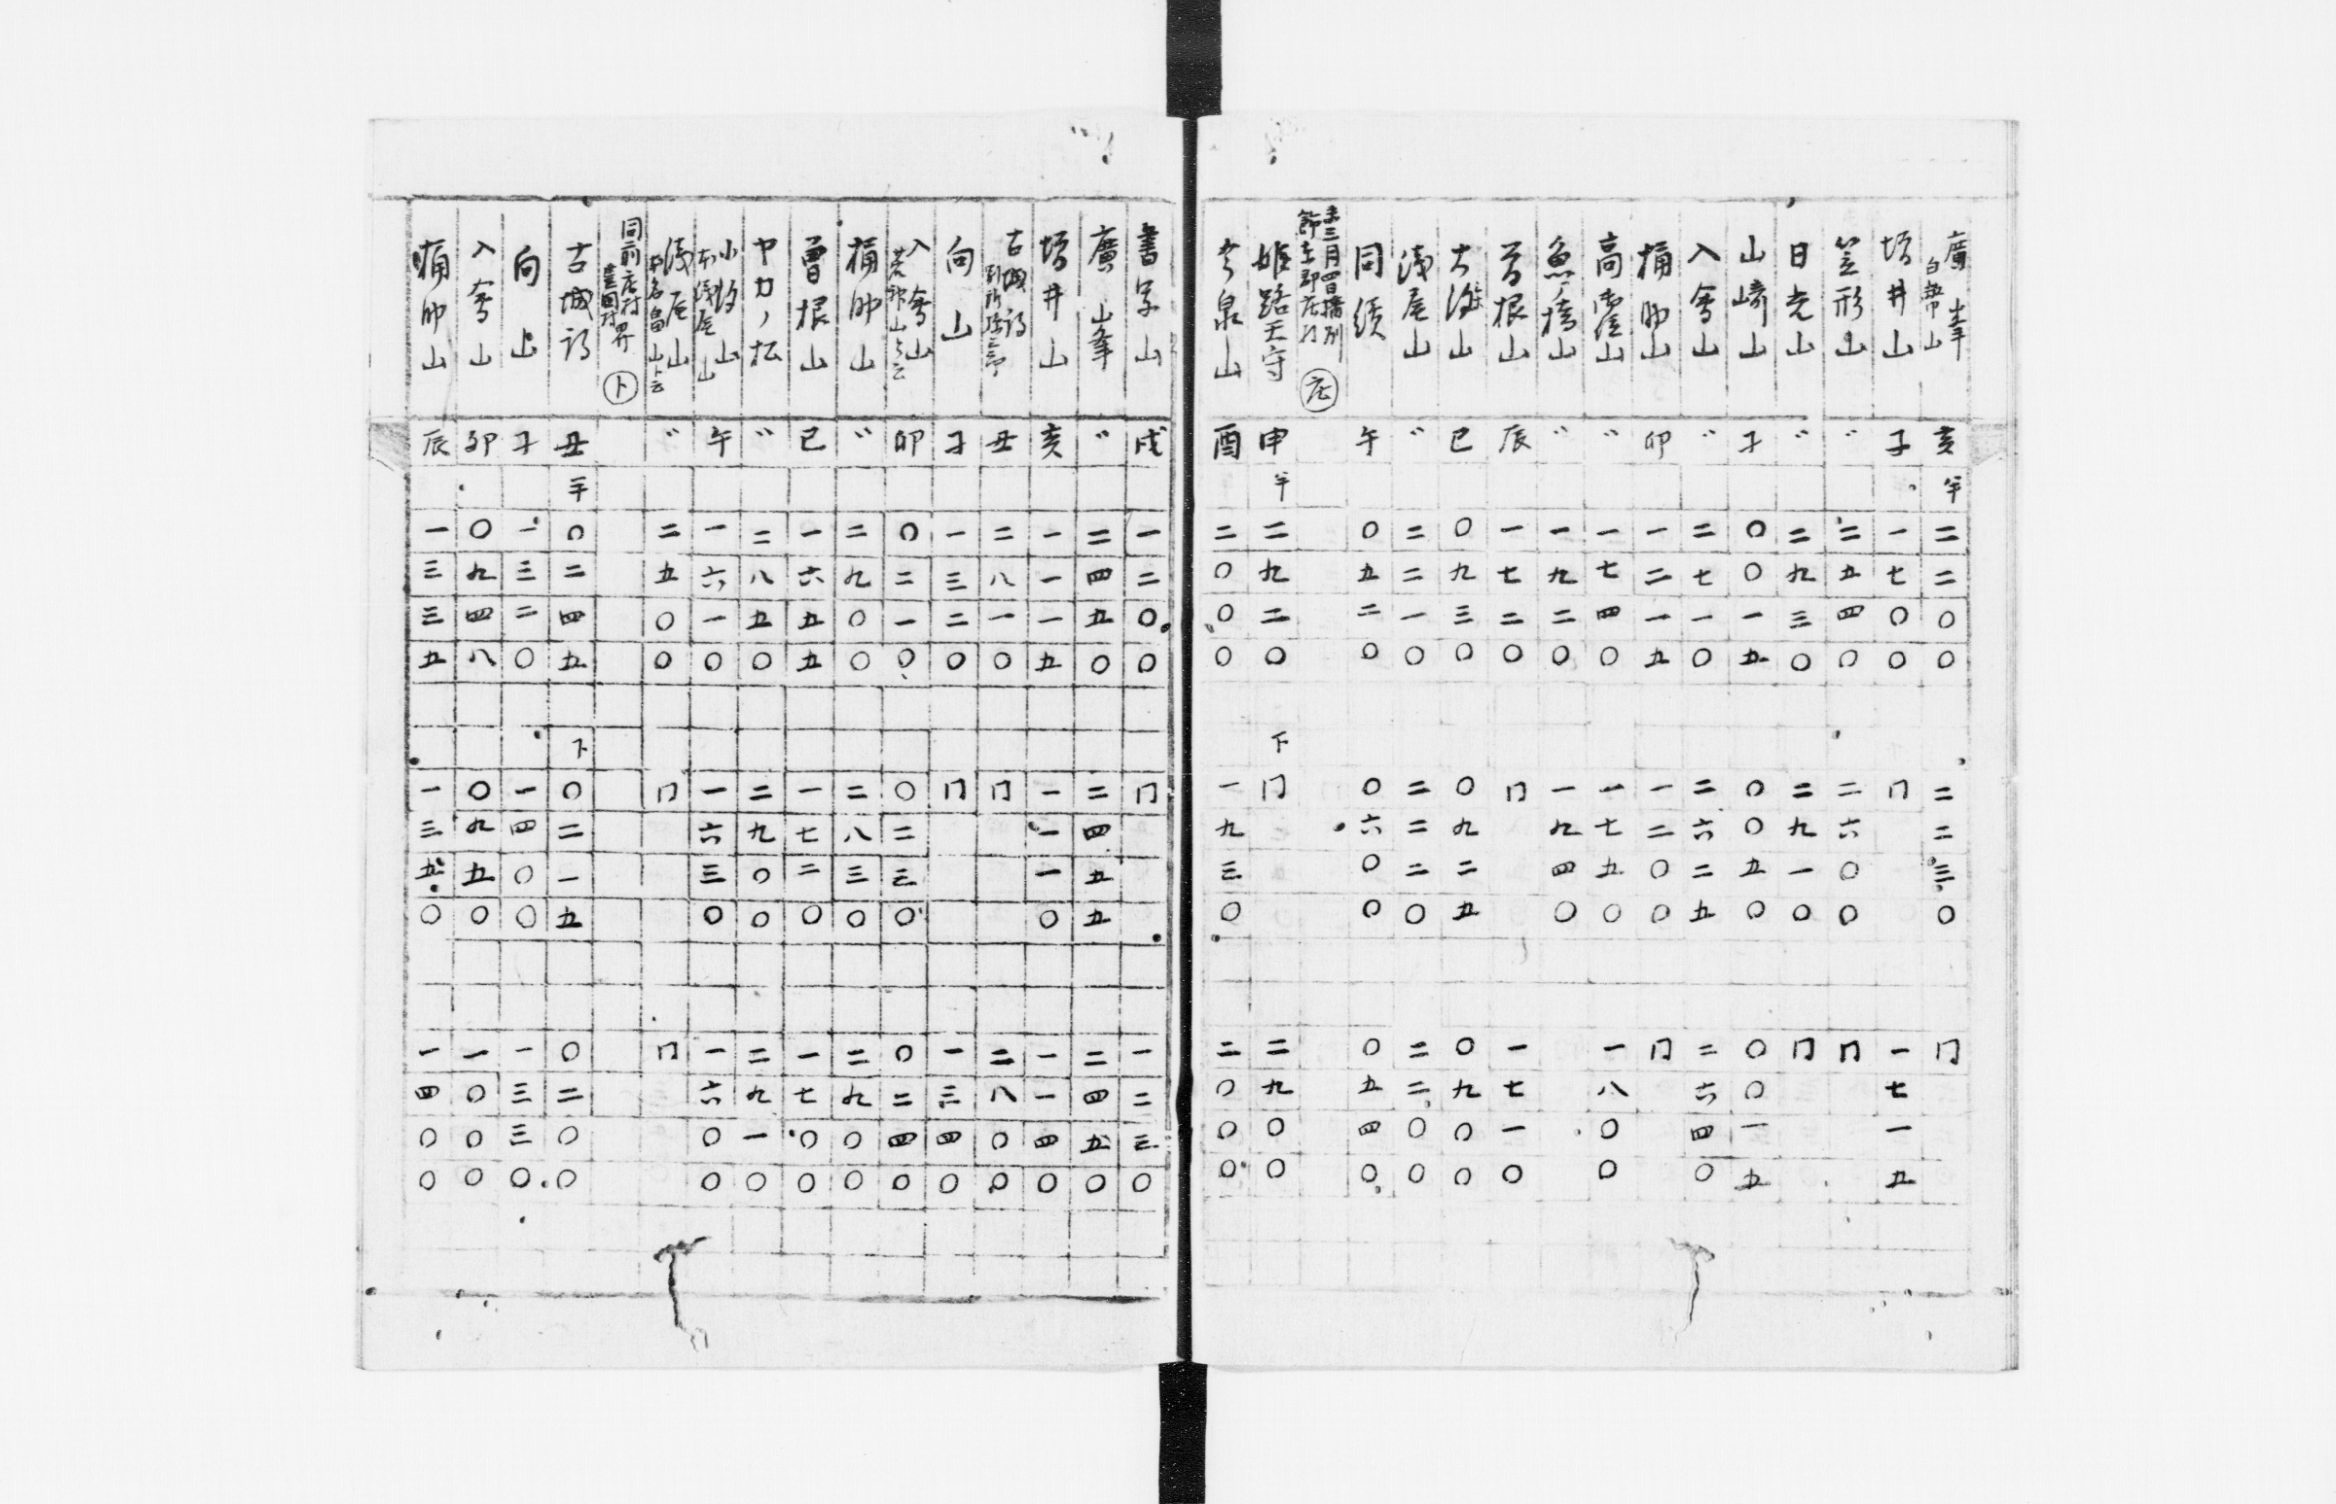 廣峯 白幣山 亥 半 二二〇〇 二二三〇 冂
増井山 子 一七〇〇 冂 一七一五
笠形山 〃 二五四〇 二六〇〇 冂
日光山 〃 二九三〇 二九一〇 冂
山崎山 子 〇〇一五 〇〇五〇 〇〇一五
入會山 〃 二七一〇 二六二五 二六四〇
桶師山 卯 一二一五 一二〇〇 冂
高山 〃 一七四〇 一七五〇 一八〇〇
魚ノ橋山 〃 一九二〇 一九四〇
曽根山 辰 一七二〇 冂 一七一〇
大汐山 巳 〇九三〇 〇九二五 〇九〇〇
浅尾山 〃 二二一〇 二二二〇 二二〇〇
同績 午 〇五二〇 〇六〇〇 〇五四〇
未三月四日播列
飾東郡庄村 庄
姫路天守 申 半 二九二〇 下 冂 二九〇〇
泉山 酉 二〇〇〇 一九三〇 二〇〇〇
書写山 戌 一二〇〇 冂 一二三〇
廣峯山 〃 二四五〇 二四五五 二四五〇
増井山 亥 一一一五 一一一〇 一一四〇
古城跡 丑 二八一〇 冂 二八〇〇
向山 子 一三二〇 冂 一三四〇
入會山 山ト云 卯 〇二一〇 〇二三〇 〇二四〇
桶師山 〃 二九〇〇 二八三〇 二九〇〇
曽根山 巳 一六五五 一七二〇 一七〇〇
ヤカノ松 〃 二八五〇 二九〇〇 二九一〇
小汐山 本浅尾山 午 一六一〇 一六三〇 一六〇〇
浅尾山 本名畠山ト云 〃 二五〇〇 冂 冂
同前庄村 界 ト
古城跡 丑 半 〇二四五 下 〇二一五 〇二〇〇
向山 子 一三二〇 一四〇〇 一三三〇
入會山 卯 〇九四八 〇九五〇 一〇〇〇
桶師山 辰 一三三五 一三五〇 一四〇〇